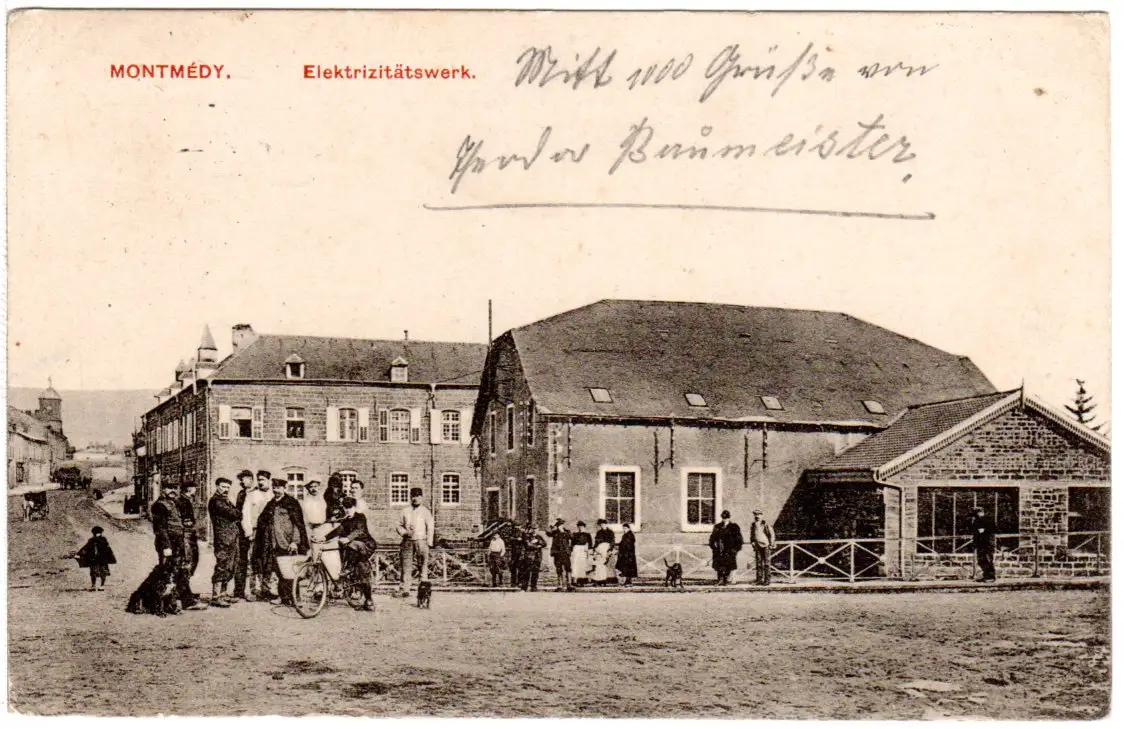 MONTMÉDY. Elektrizitätswerk.
Mitt 1000 Grüße von
Theodor Baumeister.